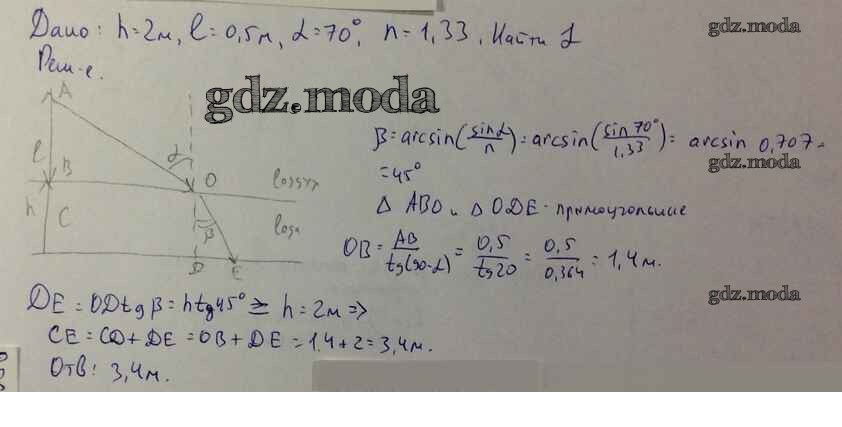 Дано: h=2м, l=0,5м, α=70°, n=1,33. Найти L
gdz.moda
Реш-е.
gdz.moda
A
l
α
B
O
воздух
h
C
β
D
E
β=arcsin(sinα/n)=arcsin(sin70°/1,33)= arcsin 0,707=
gdz.moda
=45°
Δ ABO и Δ ODE - прямоугольные
OB = AB/tg(90-α) = 0,5/tg20 = 0,5/0,364 = 1,4м.
gdz.moda
DE = ODtgβ = htg45° = h = 2м =>
CE = CD + DE = OB + DE = 1,4 + 2 = 3,4м.
Отв: 3,4м.